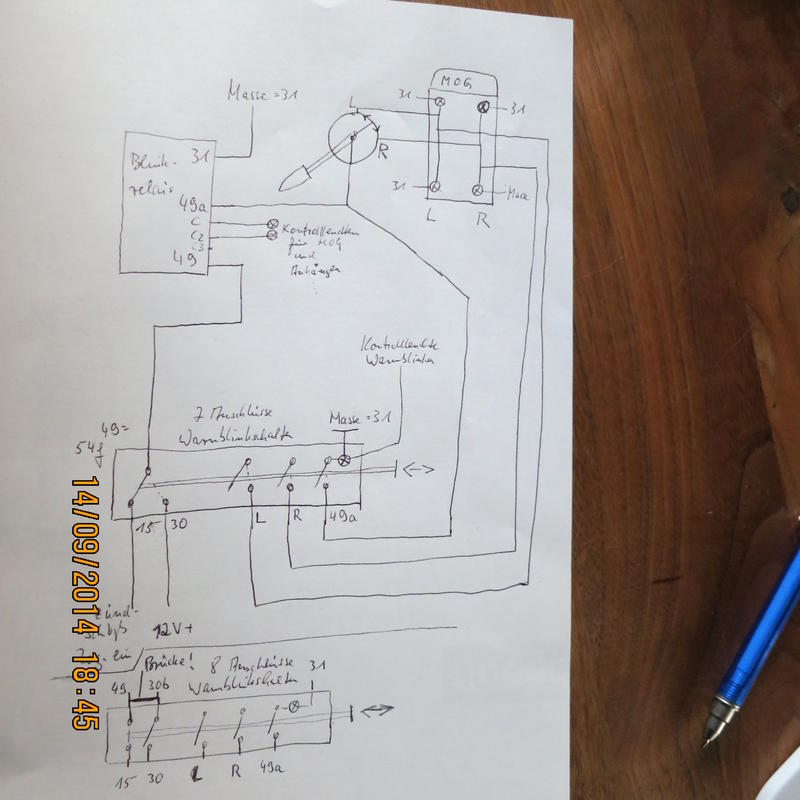 MOG
Masse = 31
L
31
31
Blink-
relais
31
R
49a
31
Masse
L
R
C
C2
C3
49
Kontrolleuchten
für MOG
und
Anhänger
Kontrolleuchte
Warnblinker
7 Anschlüsse
Warnblinkschalter
Masse = 31
49=
54f
15
30
L
R
49a
Zünd-
12V+
ein
Brücke! 8 Anschlüsse
Warnblinkschalter
31
49
30b
15
30
L
R
49a
14/09/2014 18:45